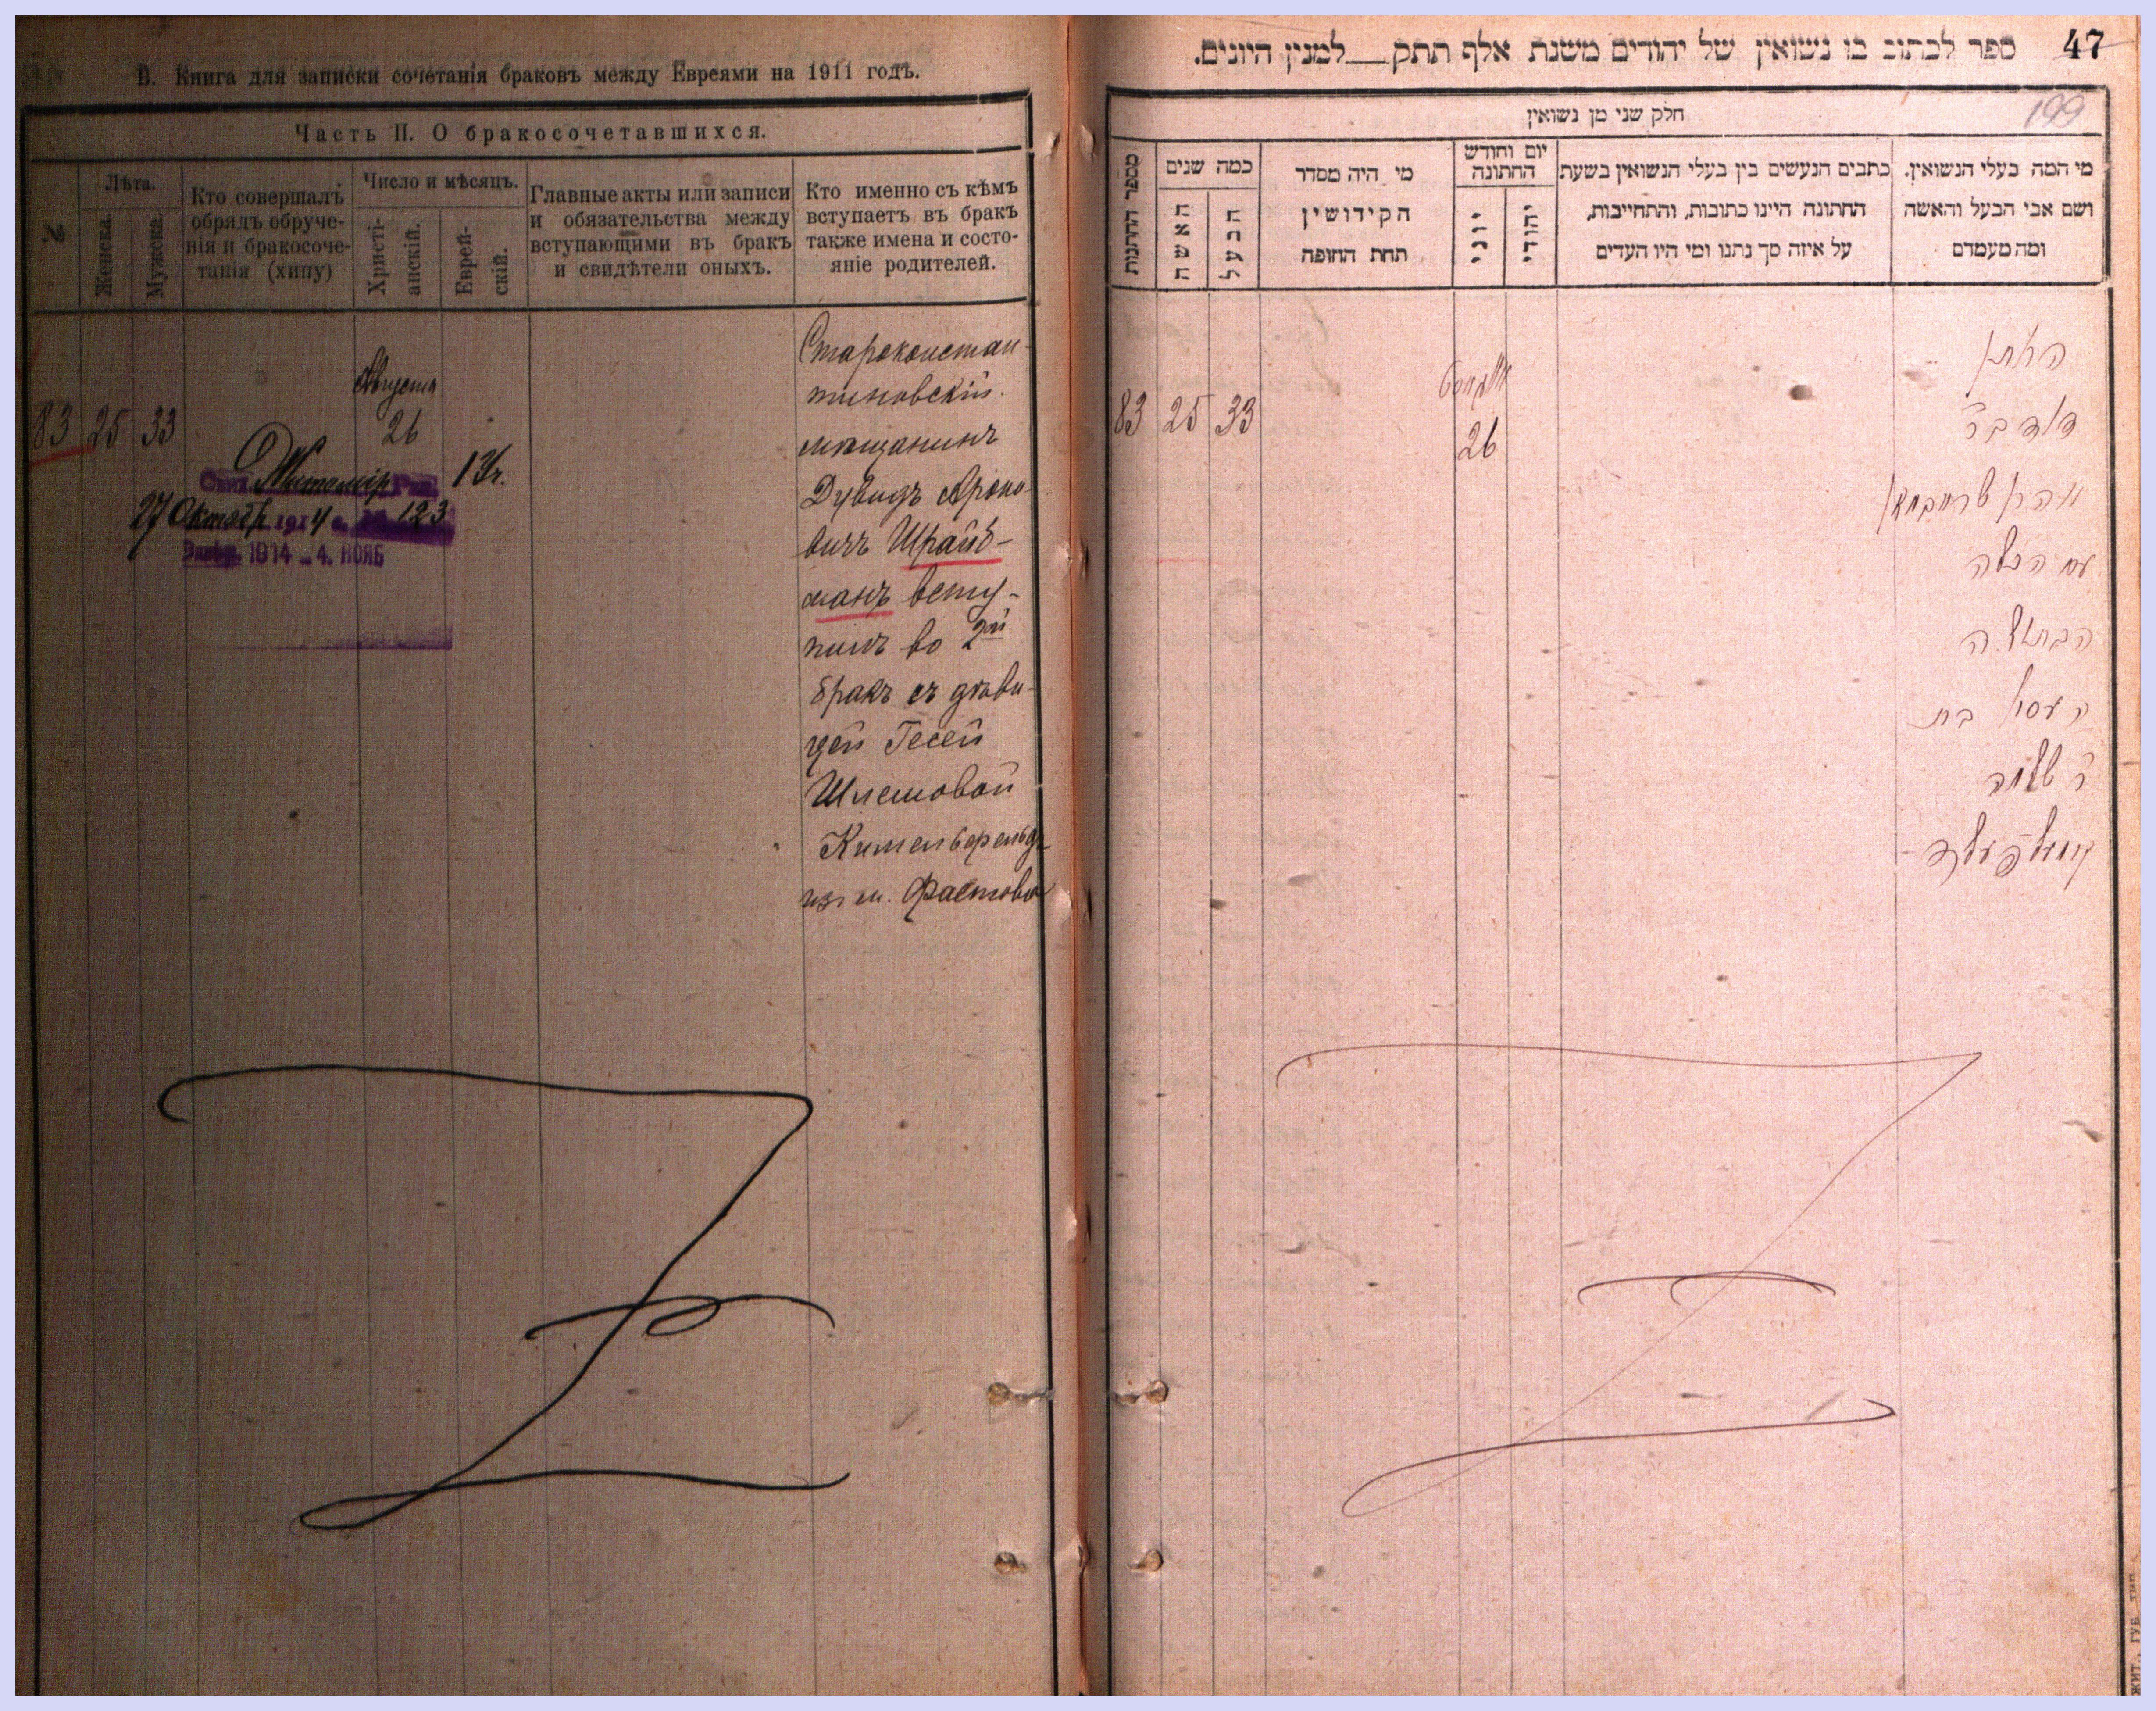 В. Книга для записки сочетанія браковъ между Евреями на 1911 годъ.
Часть II. О бракосочетавшихся.
№
Лѣта.
Женска.
Мужска.
Кто совершалъ
обрядъ обруче-
нія и бракосоче-
танія (хипу)
Число и мѣсяцъ.
Христі-
анскій.
Еврей-
скій.
Главные акты или записи
и обязательства между
вступающими въ бракъ
и свидѣтели оныхъ.
Кто именно съ кѣмъ
вступаетъ въ бракъ
также имена и состо-
яніе родителей.
83 25 33
Августа
26
Житомір
27 Октябр 1914 г. 123
1914 - 4. НОЯБ
Староконстан-
тиновскій
мѣщанинъ
Дувидъ Ароно-
вичъ Шрайб-
манъ всту-
пилъ во 2ой
бракъ съ дѣви-
цей Гесей
Шлемовой
Кимельфельдъ
из м. Фастова
47
ספר לכתוב בו נשואין של יהודים משנת אלף תתק__למנין היונים.
199
חלק שני מן נשואין
מספר החתונות
כמה שנים
האשה
הבעל
מי היה מסדר
הקידושין
תחת החופה
יום וחודש
החתונה
יוני
יהודי
כתבים הנעשים בין בעלי הנשואין בשעת
החתונה היינו כתובות, והתחייבות,
על איזה סך נתנו ומי היו העדים
מי המה בעלי הנשואין.
ושם אבי הבעל והאשה
ומה מעמדם
83 25 33
אווגוסט
26
החתן
דוד בר
אהרן שרייבמאן
עם הכלה
הבתולה
העסיא בת
ר שלמה
קימעלפעלד
ЖИТ., ГУБ. ТИП.